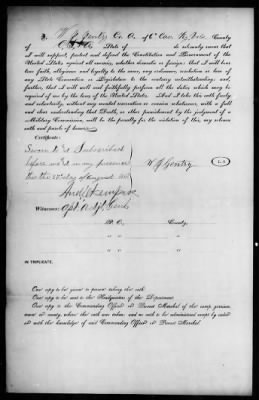 I, W. G. Gentry Co. A. of 6" Cav. County
of State of do solemnly swear that
I will support, protect and defend the Constitution and Government of the
United States against all enemies, whether domestic or foreign; that I will bear
true faith, allegiance and loyalty to the same, any ordinance, resolution or law of
any State Convention or Legislature to the contrary notwithstanding; and
further, that I will well and faithfully perform all the duties which may be
required of me by the laws of the United States. And I take this oath freely
and voluntarily, without any mental reservation or evasion whatsoever, with a full
and clear understanding that Death, or other punishment by the judgment of a
Military Commission, will be the penalty for the violation of this, my solemn
oath and parole of honor.
Certificate:
Sworn to & Subscribed
before me & in my presence
this the day of August 186
W G Gentry
L. S.
Witnesses: Capt & Adjt Genl
P. O., County,
" " "
" " "
IN TRIPLICATE.
One copy to be given to person taking the oath.
One copy to be sent to the Headquarters of the Department.
One copy to the Commanding Officer or Provost Marshal of the camp, prison,
post or county, where the oath was taken; and no oath to be administered except by order
or with the knowledge of said Commanding Officer or Provost Marshal.